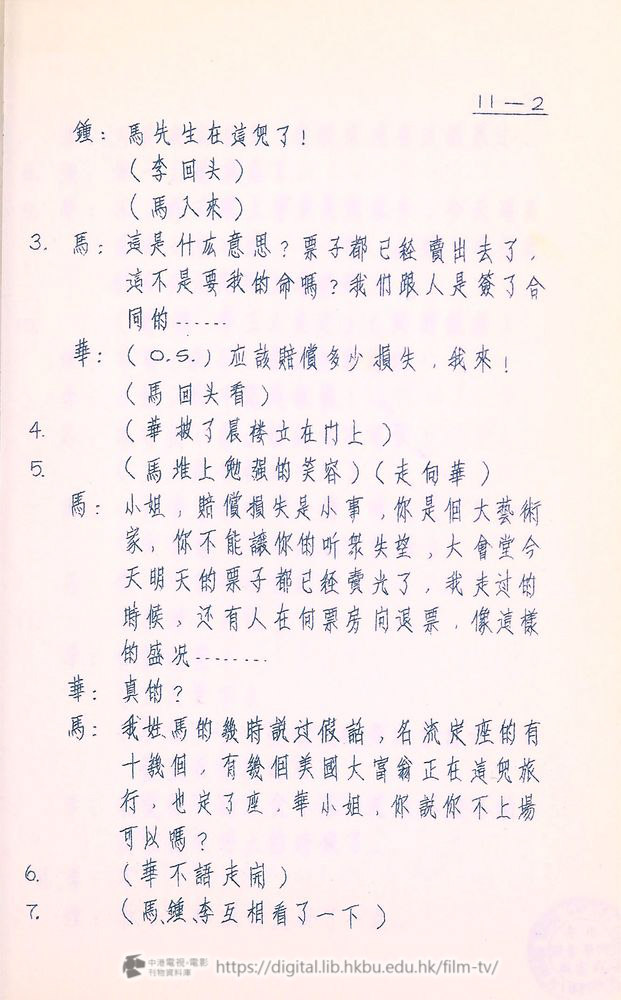 11-2
鍾：馬先生在這兒了！
（李回头）
（馬入來）
3. 馬：這是什庅意思？票子都已経賣出去了，
這不是要我的命嗎？我们跟人是簽了合
同的……
華：（O.S.）应該賠償多少損失，我來！
（馬回头看）
4. （華披了晨楼立在门上）
5. （馬堆上勉强的笑容）（走向華）
馬：小姐，賠償損失是小事，你是個大藝術
家，你不能讓你的听衆失望，大會堂今
天明天的票子都已経賣光了，我走过的
時候，还有人在向票房问退票，像這樣
的盛况………
華：真的？
馬：我姓馬的幾時說过假話，名流定座的有
十幾個，有幾個美國大富翁正在這兒旅
行，也定了座，華小姐，你說你不上場
可以嗎？
6. （華不語走開）
7. （馬、鍾、李互相看了一下）
中港電視・電影
刊物資料庫
https://digital.lib.hkbu.edu.hk/film-tv/